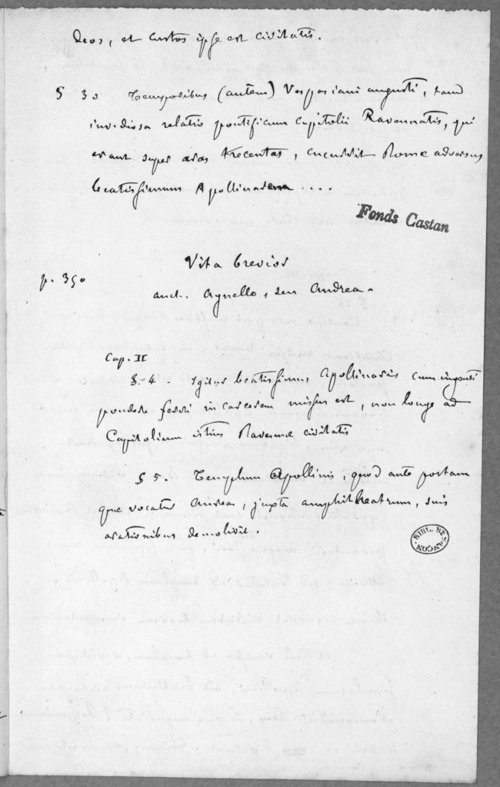 deos, et custos ipse est civitatis.
§ 30 Temporibus (autem) Vespasiani augusti, tam
invidiosa relatio pontificum capitolii Ravennatis, qui
erant super aras trecentas, cucurrit Romæ adversus
beatissimum Apollinarem ....
Fonds Castan
Vita brevior
p. 350
auct. Agnello, seu Andrea.
Cap. II
§. 4. Igitur beatissimus Apollinaris cum ingenti
pondere ferri in carcerem missus est, non longe ad
Capitolium istius Ravennæ civitatis
§ 5. Templum Apollinis, quod ante portam
que vocatur Aurea, juxta amphitheatrum, suis
orationibus demolivit.
BIBL. DE